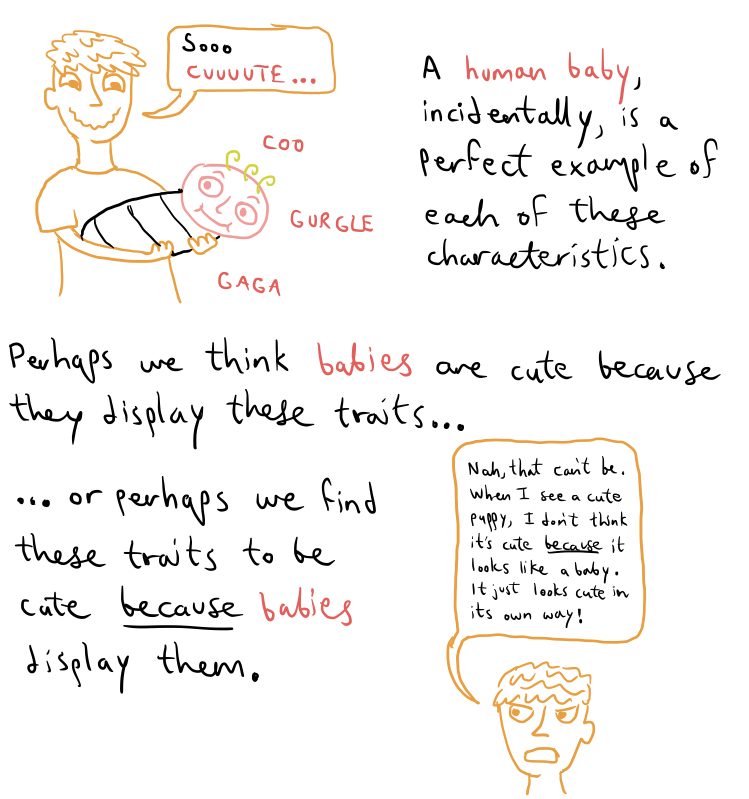 Sooo
CUUUUTE...
COO
GURGLE
GAGA
A human baby,
incidentally, is a
perfect example of
each of these
characteristics.
Perhaps we think babies are cute because
they display these traits...
... or perhaps we find
these traits to be
cute because babies
display them.
Nah, that can't be.
When I see a cute
puppy, I don't think
it's cute because it
looks like a baby.
It just looks cute in
its own way!